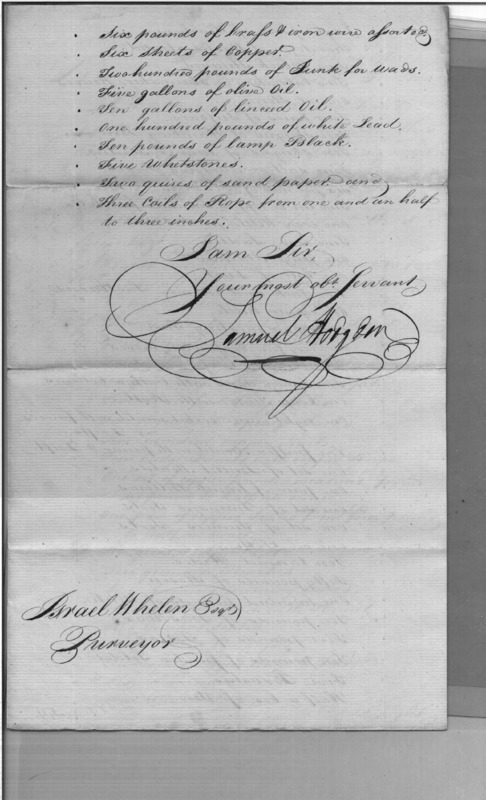 Six pounds of brass & iron wire assorted.
Six sheets of Copper
Two hundred pounds of Junk for wads.
Five gallons of olive Oil.
Ten gallons of linseed Oil.
One hundred pounds of white Lead.
Ten pounds of lamp Black.
Five Whetstones.
Two quires of sand paper and
Three Coils of Rope from one and an half
to three inches.
I am Sir,
Your most obt. Servant
Samuel Hodgdon
Israel Whelen Esqr.
Purveyor